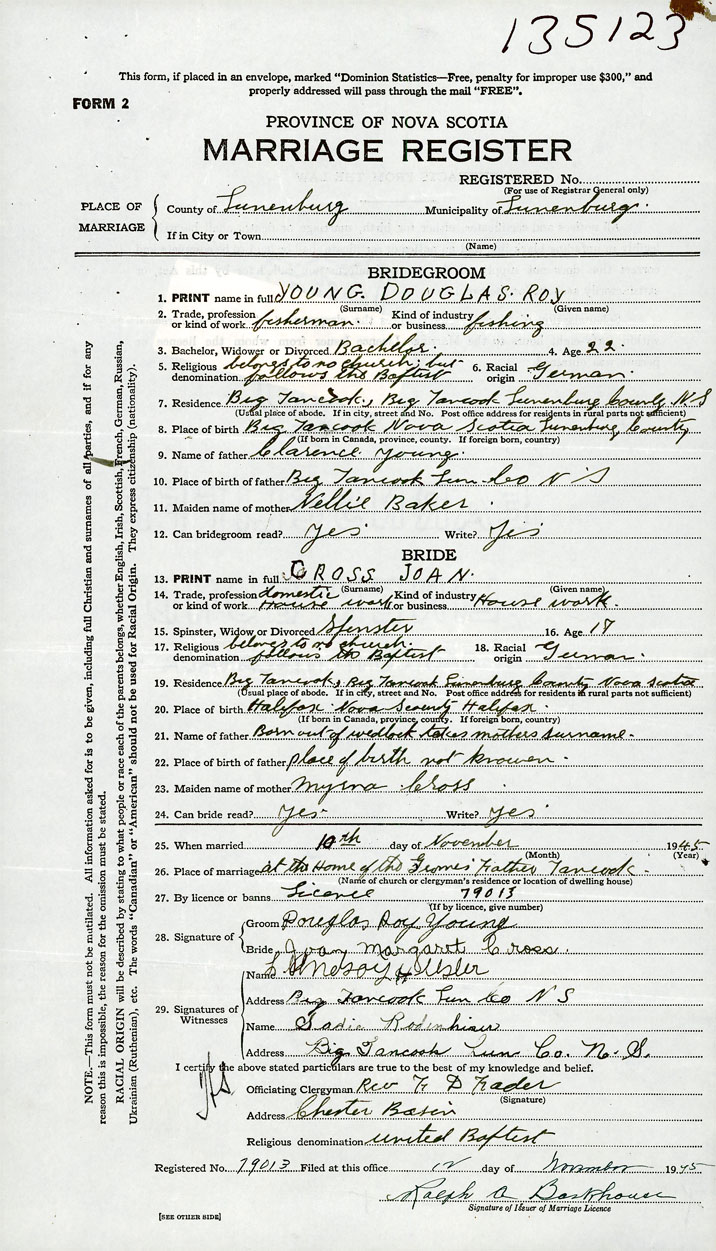 135123
This form, if placed in an envelope, marked "Dominion Statistics—Free, penalty for improper use $300," and
properly addressed will pass through the mail "FREE".
FORM 2
PROVINCE OF NOVA SCOTIA
MARRIAGE REGISTER
REGISTERED No.
(For use of Registrar General only)
PLACE OF MARRIAGE
County of Lunenburg Municipality of Lunenburg.
If in City or Town
(Name)
BRIDEGROOM
1. PRINT name in full YOUNG. DOUGLAS. ROY
(Surname) (Given name)
2. Trade, profession or kind of work fisherman. Kind of industry or business fishing
3. Bachelor, Widower or Divorced Bachelor. 4. Age 22.
5. Religious denomination belongs to no church, but follows the Baptist 6. Racial origin German.
7. Residence Big Tancook, Big Tancook Lunenburg County N S
(Usual place of abode. If in city, street and No. Post office address for residents in rural parts not sufficient)
8. Place of birth Big Tancook Nova Scotia Lunenburg County
(If born in Canada, province, county. If foreign born, country)
9. Name of father Clarence Young.
10. Place of birth of father Big Tancook Lun Co N S
11. Maiden name of mother Nellie Baker.
12. Can bridegroom read? Yes Write? Yes
BRIDE
13. PRINT name in full CROSS JOAN.
(Surname) (Given name)
14. Trade, profession or kind of work domestic House work Kind of industry or business House work.
15. Spinster, Widow or Divorced Spinster 16. Age 17
17. Religious denomination belongs to no church. follows the Baptist 18. Racial origin German.
19. Residence Big Tancook, Big Tancook Lunenburg County Nova Scotia
(Usual place of abode. If in city, street and No. Post office address for residents in rural parts not sufficient)
20. Place of birth Halifax. Nova Scotia Halifax.
(If born in Canada, province, county. If foreign born, country)
21. Name of father Born out of wedlock takes mothers surname.
22. Place of birth of father place of birth not knowen.
23. Maiden name of mother Myrna Cross
24. Can bride read? Yes. Write? Yes.
25. When married 10th day of November 1945
(Month) (Year)
26. Place of marriage at the Home of the Gromes Father Tancook.
(Name of church or clergyman's residence or location of dwelling house)
27. By licence or banns Licence 79013
(If by licence, give number)
28. Signature of
Groom Douglas Roy Young
Bride Joan Margaret Cross.
29. Signatures of Witnesses
Name Lindsay H
Address Big Tancook Lun Co N S
Name Sadie Rodenhiser
Address Big Tancook Lun. Co. N. S.
I certify the above stated particulars are true to the best of my knowledge and belief.
Officiating Clergyman Rev F D Rader
(Signature)
Address Chester Basin
Religious denomination United Baptist
Registered No. 79013 Filed at this office 12 day of November 1945
Ralph A Backhouse
Signature of Issuer of Marriage Licence
[SEE OTHER SIDE]
NOTE.—This form must not be mutilated. All information asked for is to be given, including full Christian and surnames of all parties, and if for any
reason this is impossible, the reason for the omission must be stated.
RACIAL ORIGIN will be described by stating to what people or race each of the parents belongs, whether English, Irish, Scottish, French, German, Russian,
Ukrainian (Ruthenian), etc. The words "Canadian" or "American" should not be used for Racial Origin. They express citizenship (nationality).